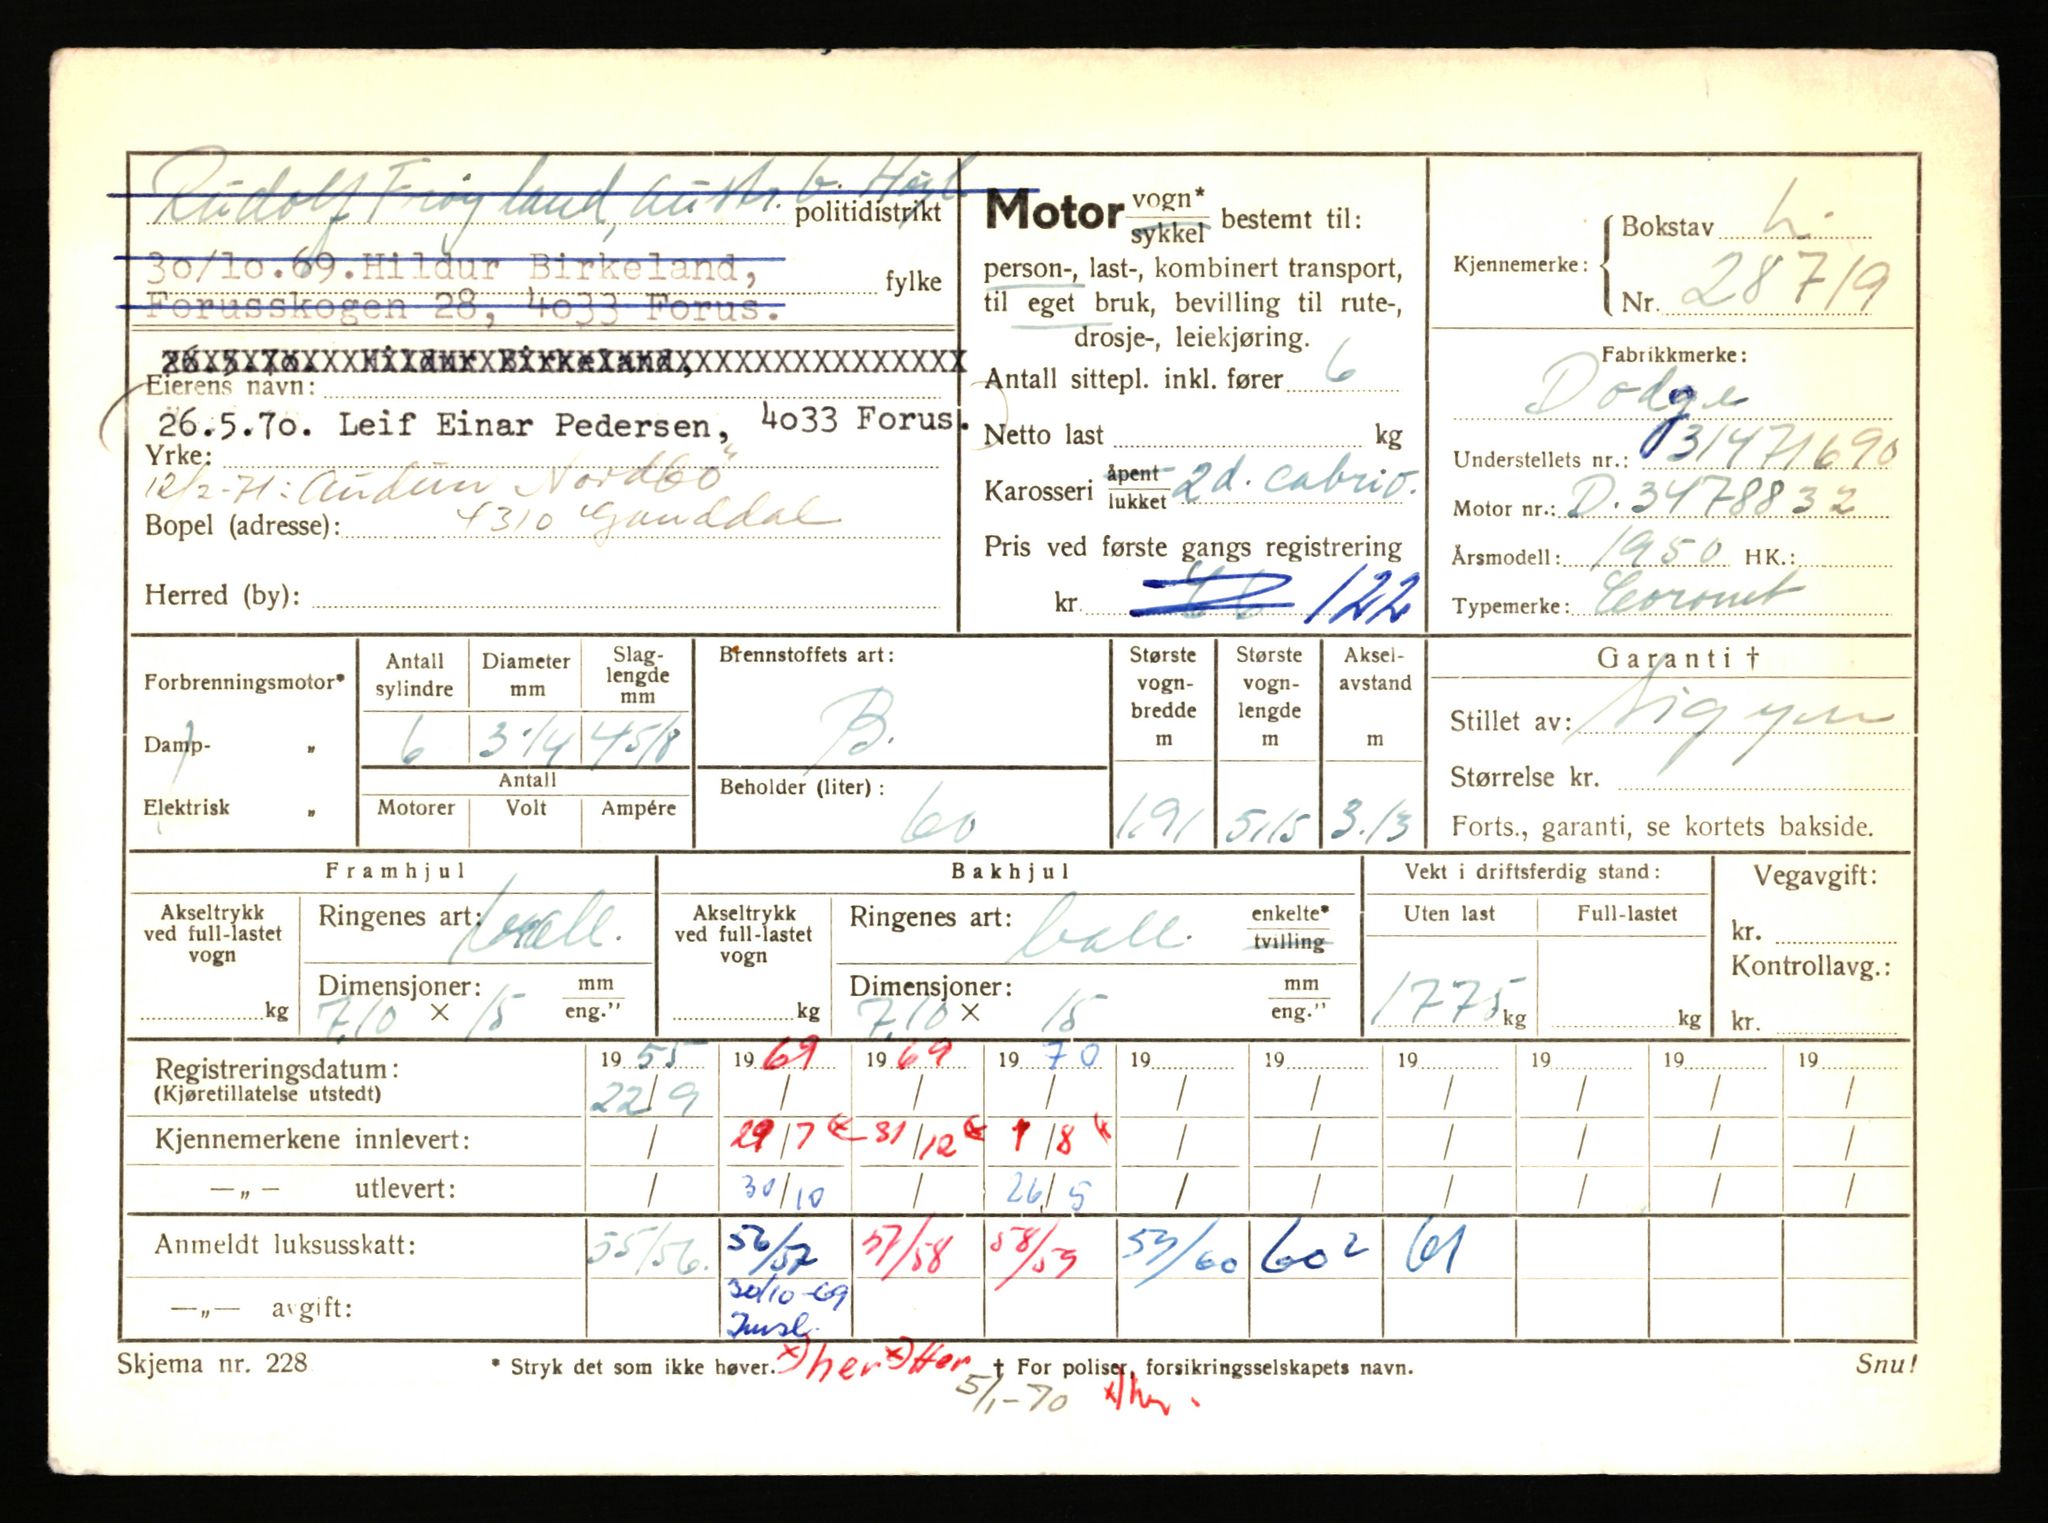 Rudolf Frøyland,
politidistrikt
30/10.69. Hildur Birkeland,
fylke
Forusskogen 28, 4033 Forus.
26.5.70. Hildur Birkeland,
Eierens navn:
26.5.70. Leif Einar Pedersen, 4033 Forus.
Yrke:
12/2-71: Audun Nordbö
Bopel (adresse): 4310 Ganddal
Herred (by):
Motor vogn* sykkel bestemt til:
person-, last-, kombinert transport,
til eget bruk, bevilling til rute-,
drosje-, leiekjøring.
Antall sittepl. inkl. fører 6
Netto last kg
Karosseri åpent lukket 2d. cabrio.
Pris ved første gangs registrering
kr. 122
Kjennemerke: Bokstav L.
Nr. 28719
Fabrikkmerke:
Dodge
Understellets nr.: 31471690
Motor nr.: D. 3478832
Årsmodell: 1950 HK.:
Typemerke: Coronet
Forbrenningsmotor*
Damp- „
Elektrisk „
Antall sylindre
Diameter mm
Slag- lengde mm
6 3 1/4 4 5/8
Antall
Motorer Volt Ampére
Brennstoffets art:
B.
Beholder (liter):
60
Største vogn- bredde m
1,91
Største vogn- lengde m
5,15
Aksel- avstand m
3.13
Garanti †
Stillet av: Sigyn
Størrelse kr.
Forts., garanti, se kortets bakside.
Framhjul
Akseltrykk ved full-lastet vogn
kg
Ringenes art: ball.
Dimensjoner: mm eng."
7,10 × 15
Bakhjul
Akseltrykk ved full-lastet vogn
kg
Ringenes art: ball. enkelte* tvilling
Dimensjoner: mm eng."
7,10 × 15
Vekt i driftsferdig stand:
Uten last Full-lastet
1775 kg kg
Vegavgift:
kr.
Kontrollavg.:
kr.
Registreringsdatum: 19 55 19 69 19 69 19 70 19 19 19 19 19 19
(Kjøretillatelse utstedt) 22/9 / / / / / / / / /
Kjennemerkene innlevert: / 29/7 x 31/12 x 1/8 x / / / / / /
—„— utlevert: / 30/10 / 26/5 / / / / / /
Anmeldt luksusskatt: 55/56. 56/57 57/58 58/59 59/60 60 2 61
—„— avgift: 30/10-69
Skjema nr. 228
* Stryk det som ikke høver. x) her x) Her
† For poliser, forsikringsselskapets navn.
Snu!
5/1-70 x) her.